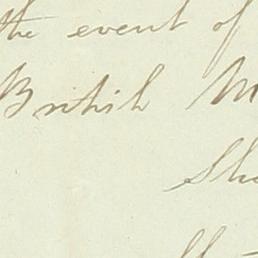 the event of
British M
Sh